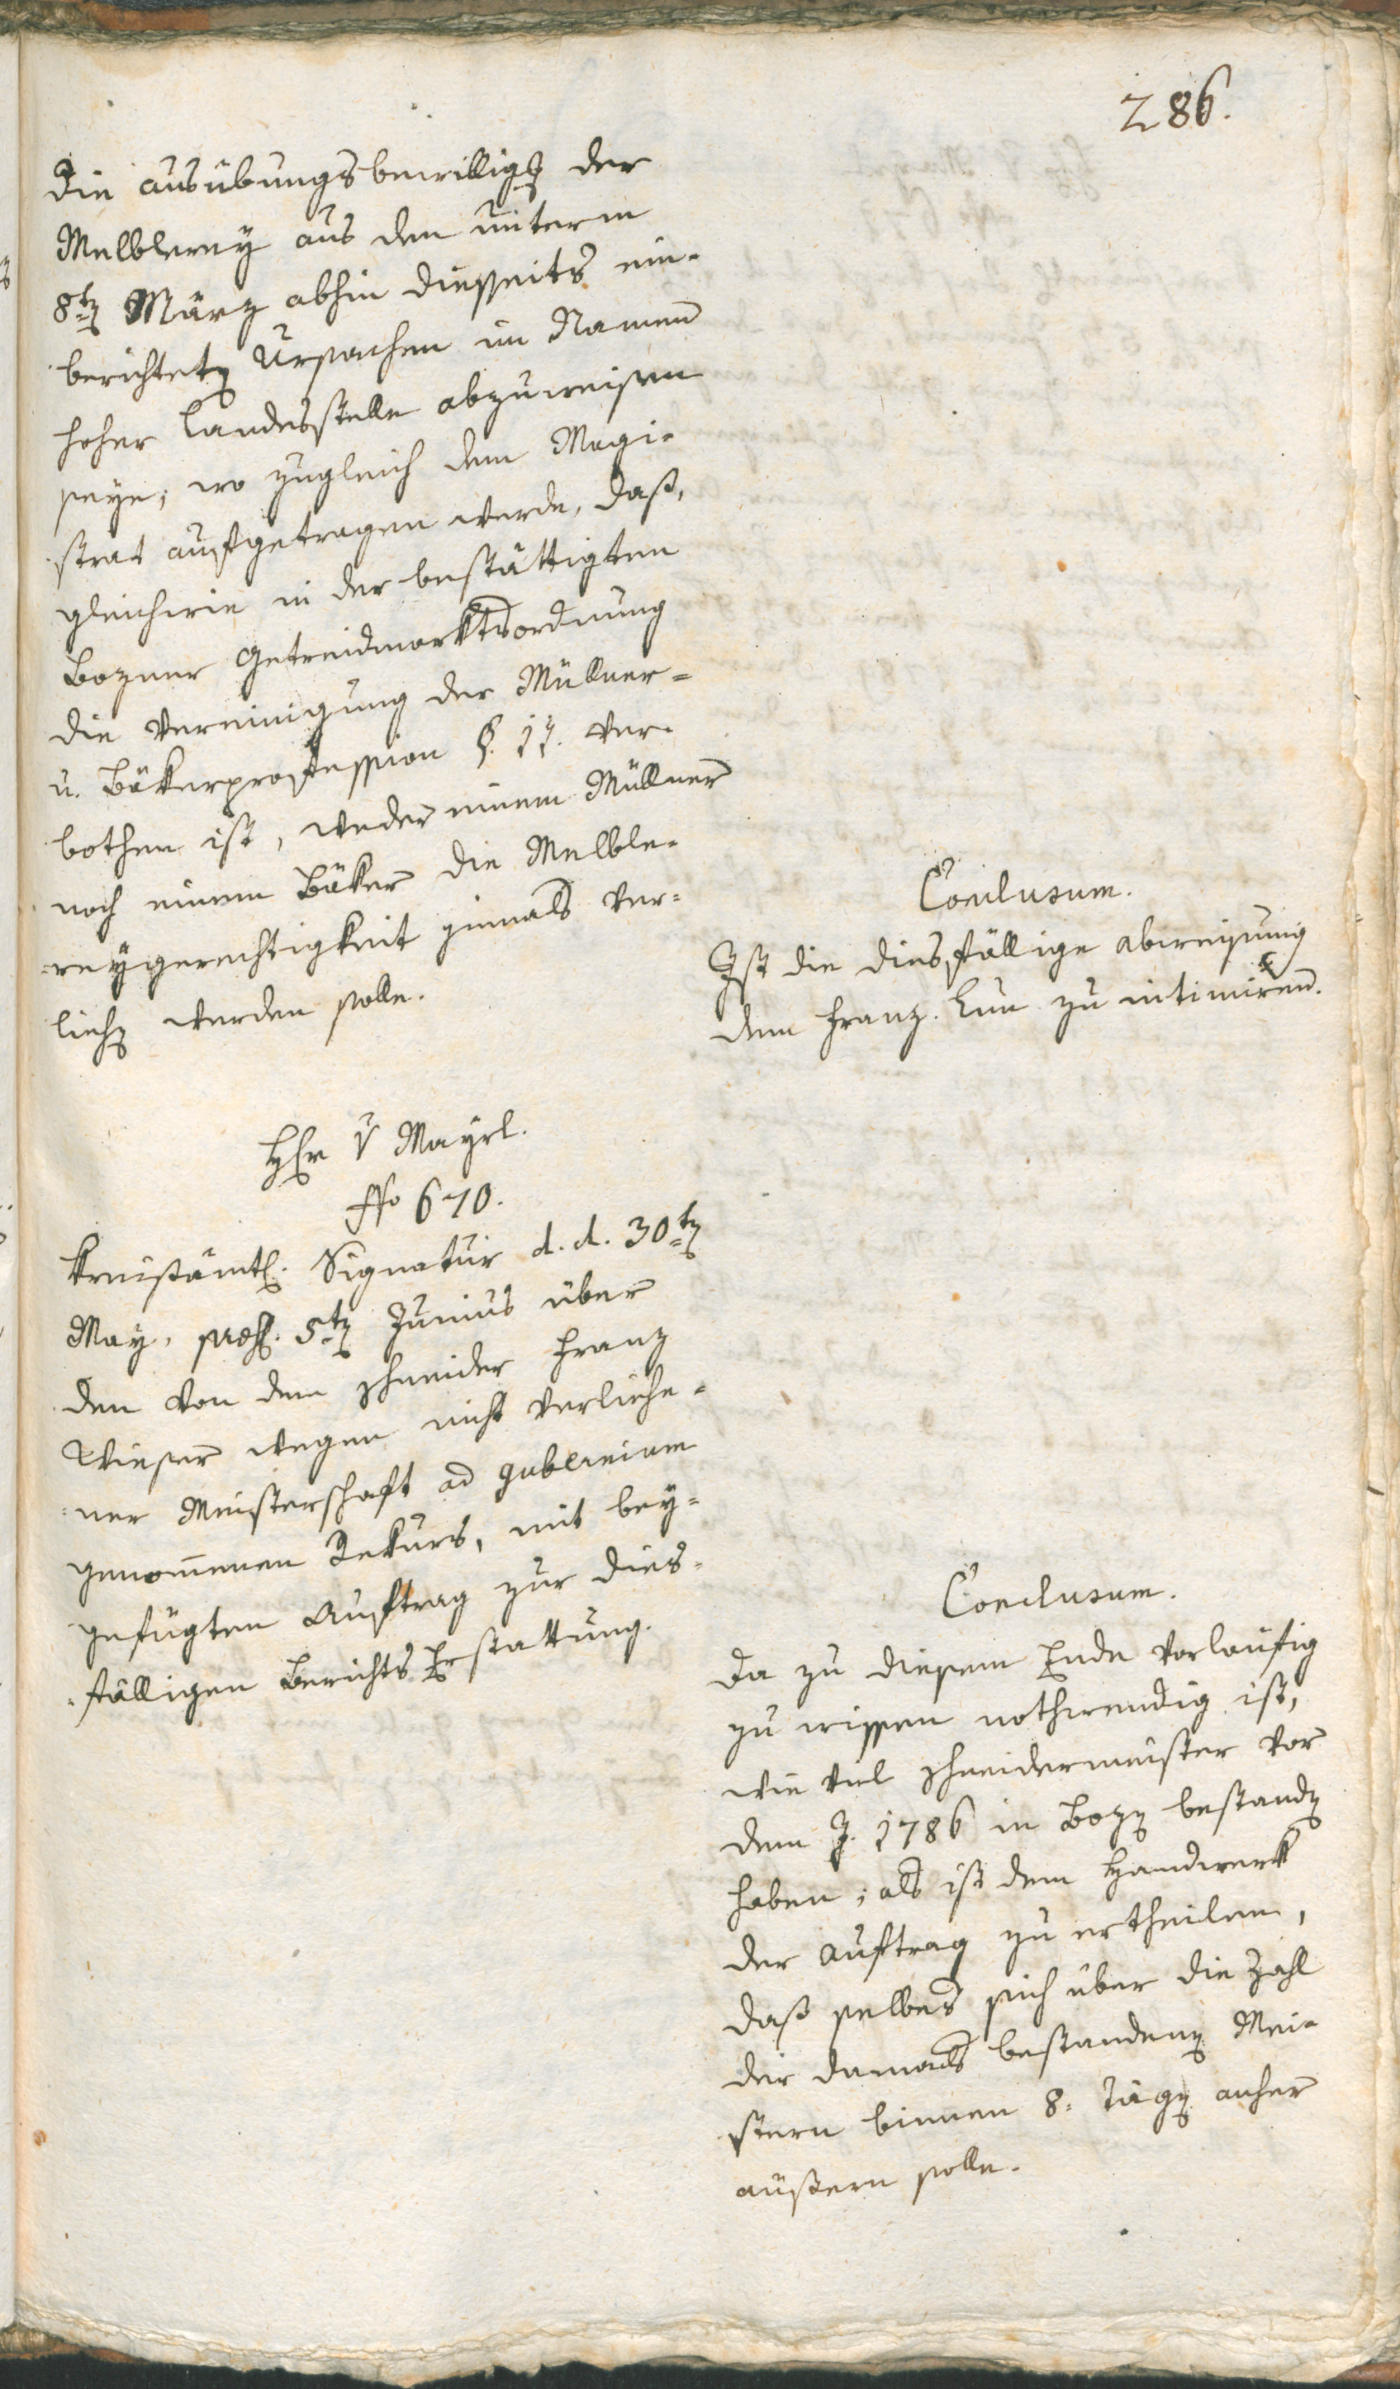 286.
die ausübungsbewilligg der
Melblerey aus den unterm
8tn März abhin diesseits ein-
berichtetn Ursachen im Namen
hoher Landesstelle abzuweisen
seye; wo zugleich dem Magi-
strat aufgetragen werde, daß,
gleichwie in der bestättigten
Bozner Getreidmarktsordnung
die Vereinigung der Müllner-
u. Bäkerprofession §. 17. ver-
bothen ist, weder einem Müllner
noch einem Bäker die Melble-
reygerechtigkeit jemals ver-
liehn werden solle.
Conclusum.
Ist die diesfällige abweisung
dem Franz Lun zu intimiren.
Hr v Mayrl.
No 670.
Kreisämtl. Signatur d. d. 30tn
May, praes. 5tn Junius über
den von dem schneider Franz
Wieser wegen nicht verliehe-
ner Meisterschaft ad gubernium
genommenen Rekurs, mit bey-
gefügten Auftrag zur dies-
fälligen Berichts Erstattung.
Conclusum.
Da zu diesem Ende vorläufig
zu wissen nothwendig ist,
wie viel schneidermeister vor
dem J. 1786 in Bozn bestandn
haben; als ist dem Handwerk
der auftrag zu ertheilen,
daß selbes sich über die Zahl
der damals bestandenn Mei-
stern binnen 8. Tägn anher
äußern solle.